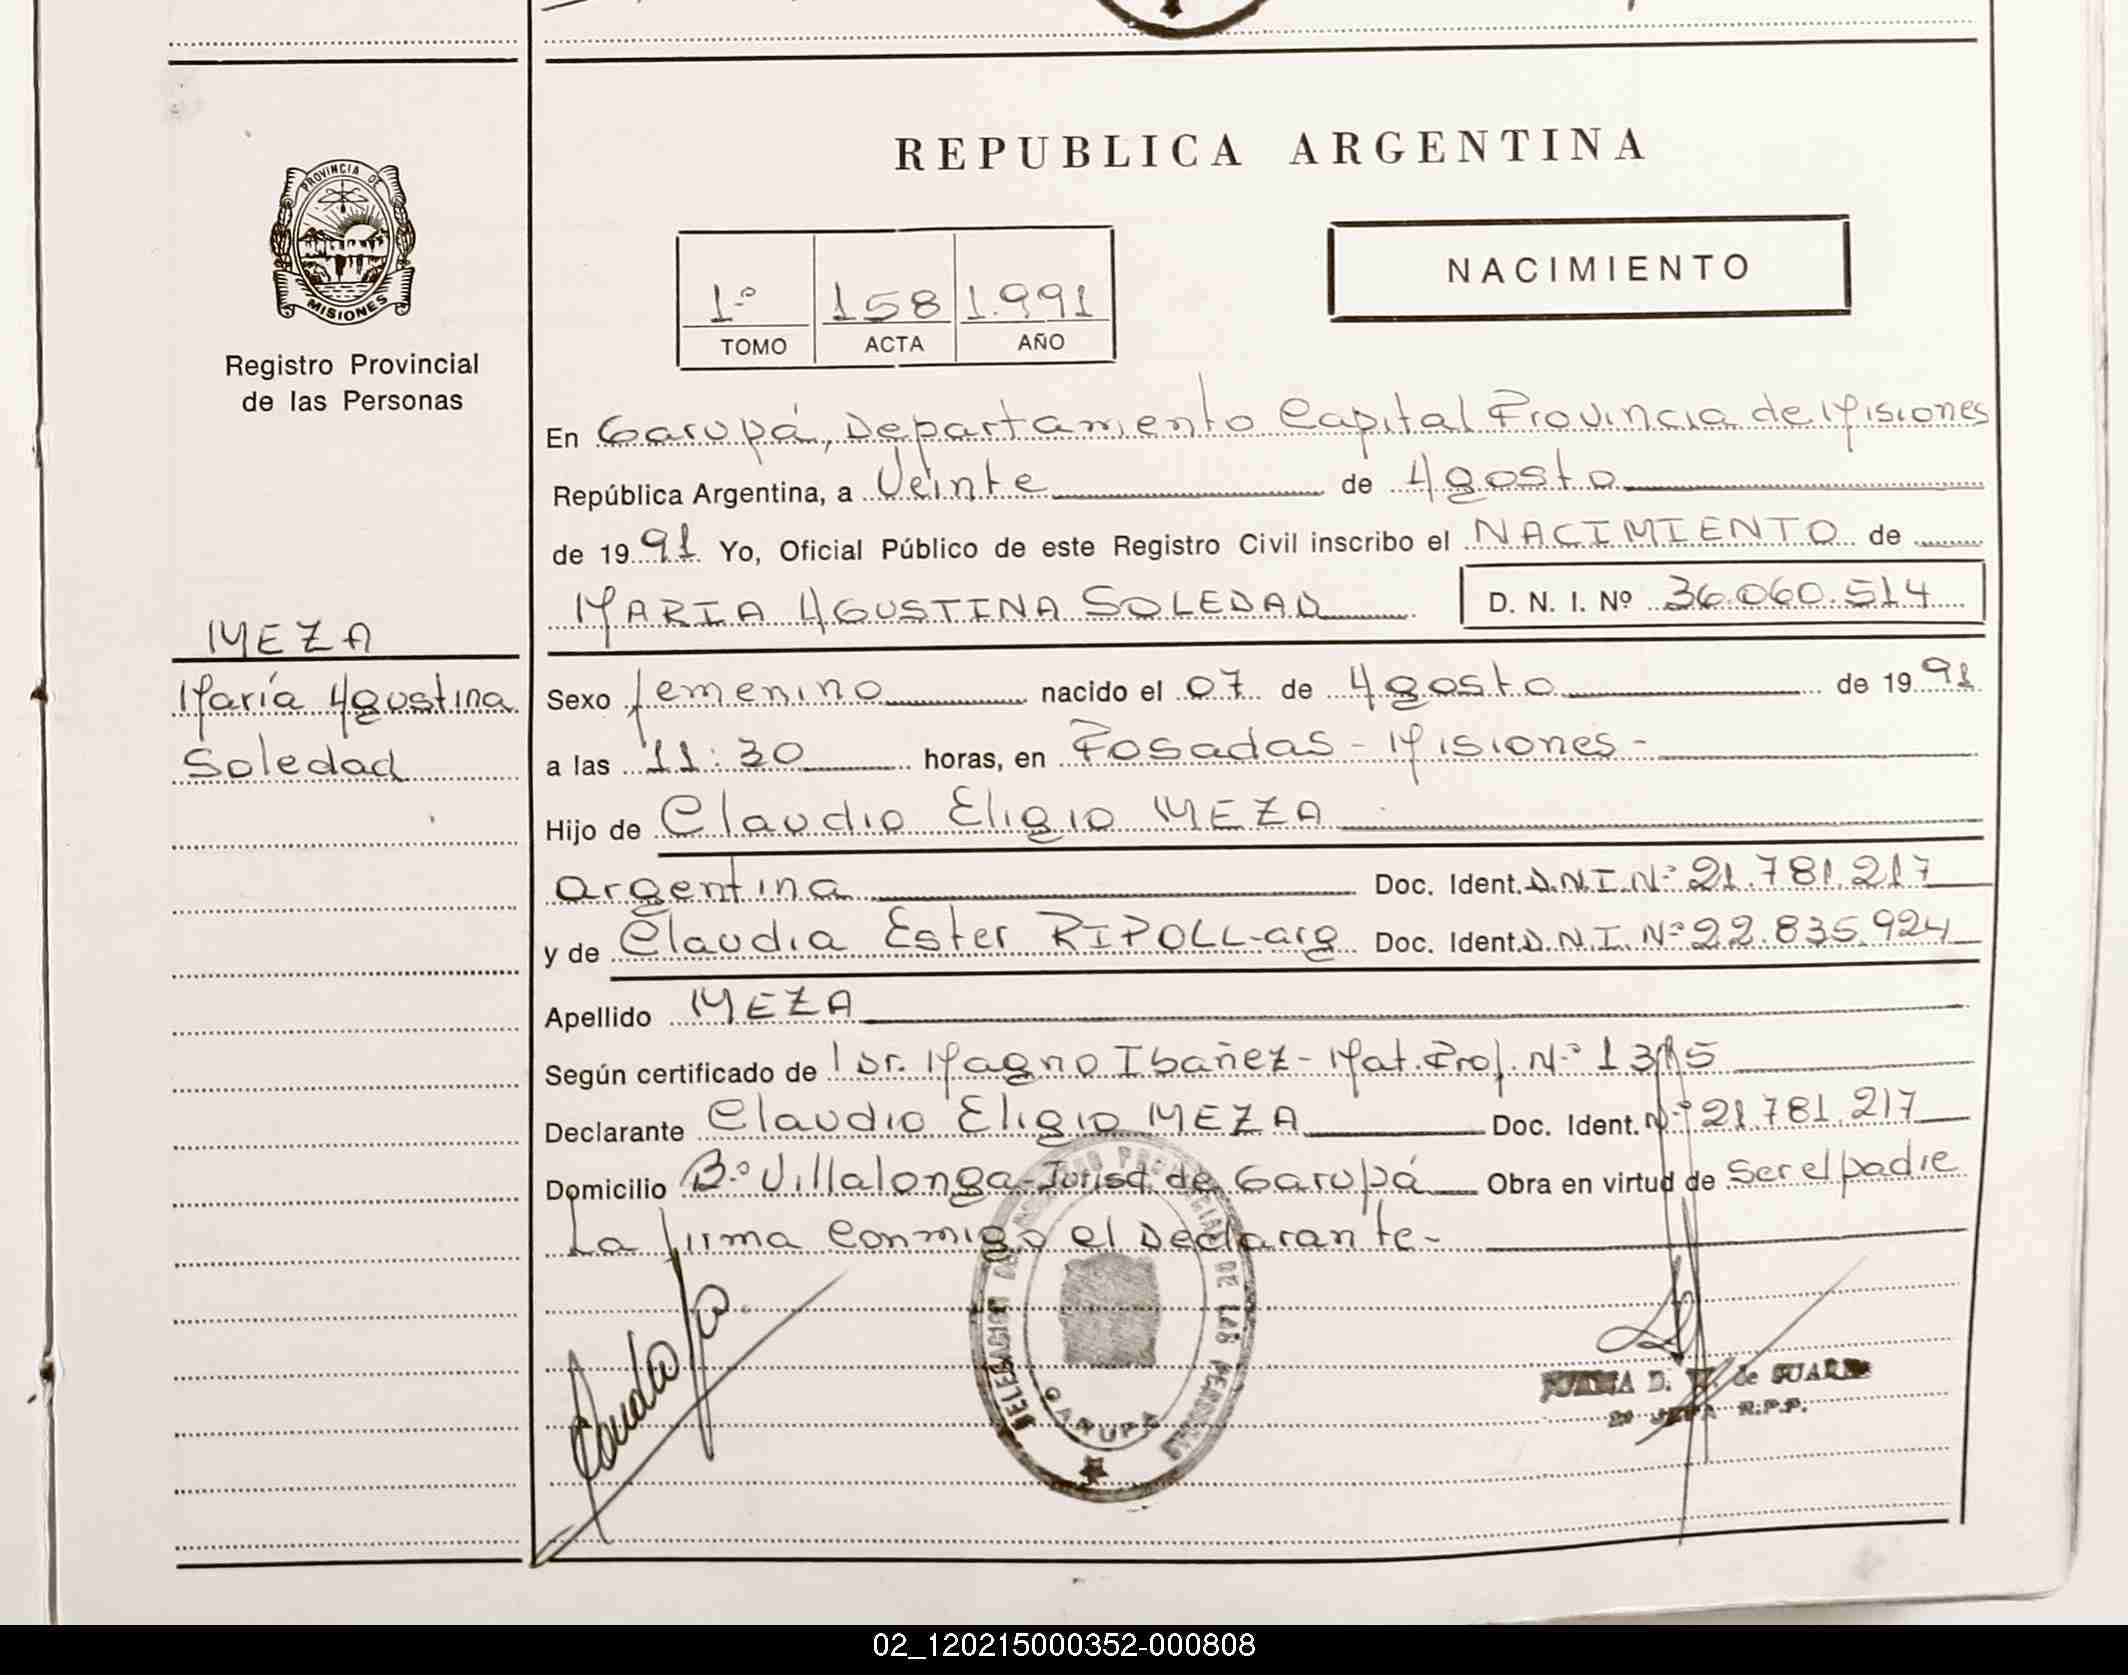 REPUBLICA ARGENTINA
PROVINCIA DE
MISIONES
Registro Provincial
de las Personas
NACIMIENTO
1º 158 1.991
TOMO ACTA AÑO
En Garupá, Departamento Capital Provincia de Misiones
República Argentina, a Veinte de Agosto
de 1991 Yo, Oficial Público de este Registro Civil inscribo el NACIMIENTO de
MARIA AGUSTINA SOLEDAD D. N. I. Nº 36.060.514
MEZA
María Agustina
Soledad
Sexo femenino nacido el 07 de Agosto de 1991
a las 11:30 horas, en Posadas - Misiones -
Hijo de Claudio Eligio MEZA
argentina Doc. Ident. D.N.I. Nº 21.781.217
y de Claudia Ester RIPOLL-arg Doc. Ident. D.N.I. Nº 22.835.924
Apellido MEZA
Según certificado de Dr. Magno Ibañez - Mat. Prof. Nº
Declarante Claudio Eligio MEZA Doc. Ident. Nº 21.781.217
Domicilio Bº Villalonga-Jurisd. de Garupá Obra en virtud de ser el padre
La firma conmigo el Declarante-
DELEGACION DE LAS PERSONAS
GARUPA
D. de
2º JEFA R.P.P.
02_120215000352-000808